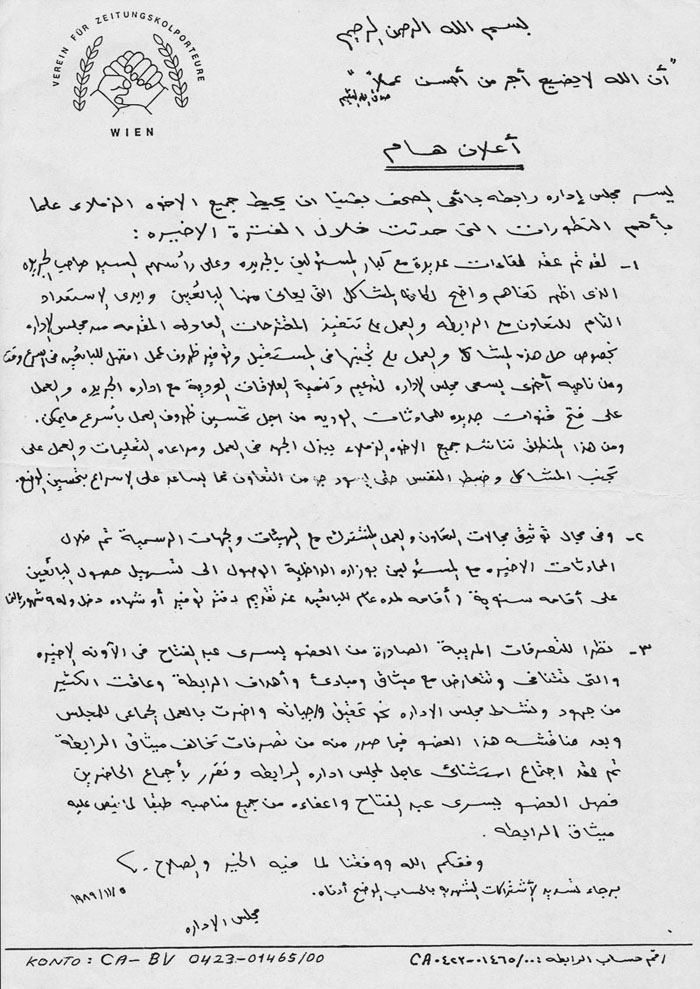 VEREIN FÜR ZEITUNGSKOLPORTEURE
WIEN
بسم الله الرحمن الرحيم
"أن الله لا يضيع أجر من أحسن عملاً"
صدق الله العظيم
أعلان هام
يسر مجلس إداره رابطه بائعى الصحف بفيينا ان يحيط جميع الاخوه الزملاء علما
بأهم التطورات التى حدثت خلال الفترة الاخيره :
١- لقد تم عقد لقاءات عديدة مع كبار المسئولين بالجريده وعلى رأسهم السيد صاحب الجريده
الذى اظهر تفاهم واضح لكافة المشاكل التى يعانى منها البائعين وابدى الاستعداد
التام للتعاون مع الرابطه والعمل على تنفيذ المقترحات العادله المقدمه من مجلس الإداره
بخصوص حل هذه المشاكل والعمل على تجنبها فى المستقبل وتوفير ظروف عمل افضل للبائعين فى اسرع وقت
ومن ناحيه أخرى يسعى مجلس الإداره لتدعيم وتنمية العلاقات الودية مع اداره الجريده والعمل
على فتح قنوات جديده للمحادثات الوديه من اجل تحسين ظروف العمل بأسرع مايمكن.
ومن هذا المنطلق نناشد جميع الاخوه الزملاء ببذل الجهد فى العمل ومراعاه التعليمات والعمل على
تجنب المشاكل وضبط النفس حتى يسود جو من التعاون مما يساعد على الإسراع بتحسين الوضع.
٢- وفى مجال توثيق مجالات التعاون والعمل المشترك مع الهيئات والجهات الرسمية تم خلال
المحادثات الاخيره مع المسئولين بوزاره الداخلية الوصول الى تسهيل حصول البائعين
على أقامه سنوية (أقامه لمده عام للبائعين عند تقديم دفتر توفير أو شهاده دخل
٣- نظرا للتصرفات المريبة الصادرة من العضو يسرى عبد الفتاح فى الآونه الاخيره
والتى تتنافى وتتعارض مع ميثاق ومبادئ وأهداف الرابطة وعاقت الكثير
من جهود ونشاط مجلس الاداره نحو تحقيق واجباته واضرت بالعمل الجماعى للمجلس
وبعد مناقشه هذا العضو فيما صدر منه من تصرفات تخالف ميثاق الرابطة
تم عقد اجتماع استثنائى عاجل لمجلس اداره الرابطه وتقرر بأجماع الحاضرين
فصل العضو يسرى عبد الفتاح واعفاءه من جميع مناصبه طبقا لما ينص عليه
ميثاق الرابطه .
وفقكم الله ووفقنا لما فيه الخير والصلاح .
برجاء تسديد الأشتراكات الشهريه بالحساب الموضح أدناه.
١٩٨٩/١١/٥
مجلس الاداره
KONTO: CA-BV 0423-01465/00
رقم حساب الرابطه : CA٠٤٢٣-٠١٤٦٥/٠٠